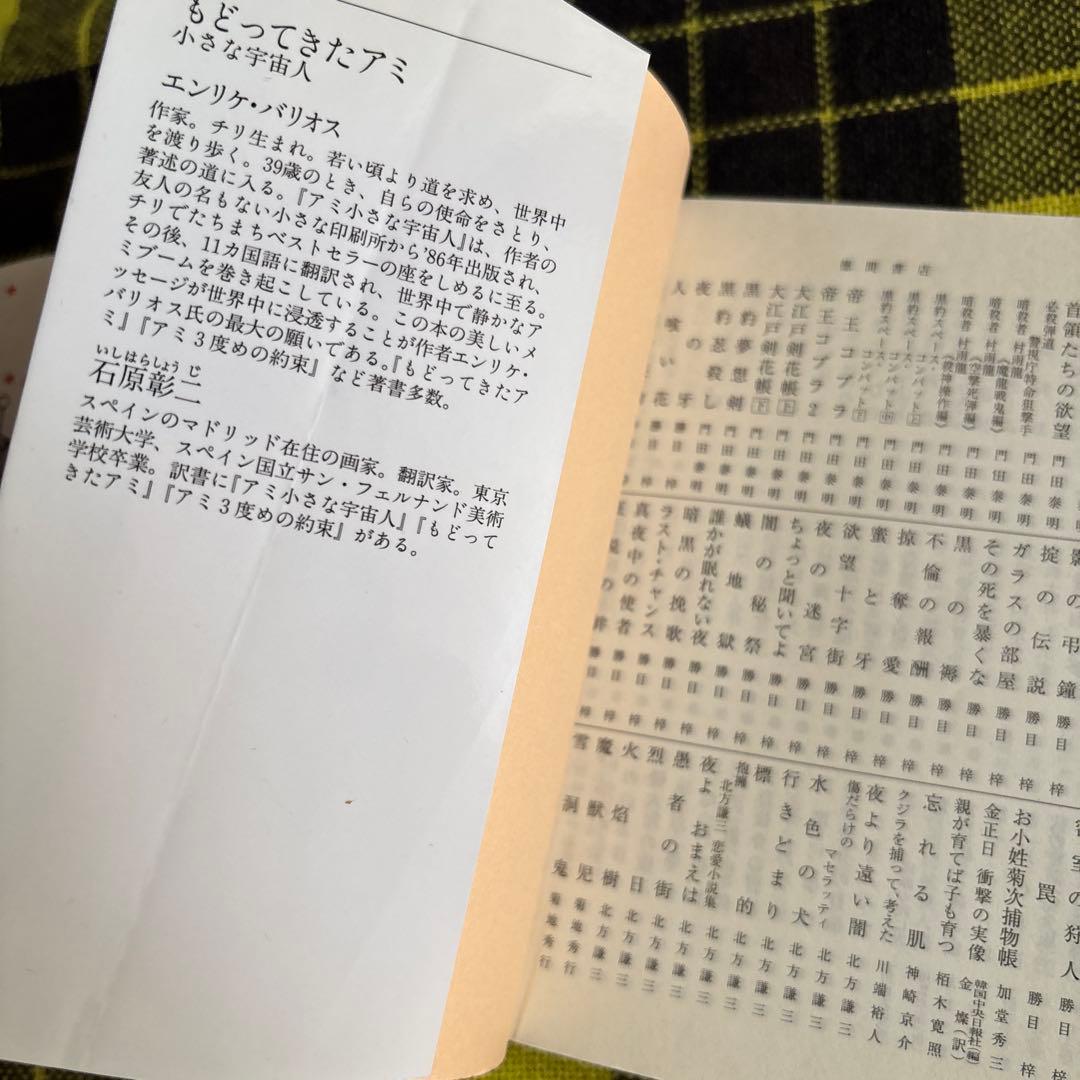 もどってきたアミ
小さな宇宙人
エンリケ・バリオス
作家。チリ生まれ。若い頃より道を求め、世界中
を渡り歩く。39歳のとき、自らの使命をさとり、
著述の道に入る。『アミ小さな宇宙人』は、作者の
友人の名もない小さな印刷所から'86年出版され、
チリでたちまちベストセラーの座をしめるに至る。
その後、11カ国語に翻訳され、世界中で静かなア
ミブームを巻き起こしている。この本の美しいメ
ッセージが世界中に浸透することが作者エンリケ・
バリオス氏の最大の願いである。『もどってきたア
ミ』『アミ3度めの約束』など著書多数。
いしはらしょうじ
石原彰二
スペインのマドリッド在住の画家。翻訳家。東京
芸術大学、スペイン国立サン・フェルナンド美術
学校卒業。訳書に『アミ小さな宇宙人』『もどって
きたアミ』『アミ3度めの約束』がある。
徳間書店
首領たちの欲望 門田泰明
必殺弾道 門田泰明
警視庁特命狙撃手
暗殺者 村雨龍 門田泰明
暗殺者 村雨龍《魔龍戦鬼編》 門田泰明
暗殺者 村雨龍《空撃死弾編》 門田泰明
黒豹スペース・コンバット上《殺神操作編》 門田泰明
黒豹スペース・コンバット中 門田泰明
黒豹スペース・コンバット下 門田泰明
帝王コブラ 門田泰明
帝王コブラ2 門田泰明
大江戸剣花帳上 門田泰明
大江戸剣花帳下 門田泰明
黒豹夢想剣 門田泰明
黒豹忍殺し 門田泰明
夜の牙 勝目梓
人喰い花 勝目梓
影の弔鐘 勝目梓
掟の伝説 勝目梓
ガラスの部屋 勝目梓
その死を暴くな 勝目梓
黒の褥 勝目梓
不倫の報酬 勝目梓
掠奪愛 勝目梓
蜜と牙 勝目梓
欲望十字街 勝目梓
夜の迷宮 勝目梓
ちょっと聞いてよ 勝目梓
闇の秘祭 勝目梓
蟻地獄 勝目梓
誰かが眠れない夜 勝目梓
暗黒の挽歌 勝目梓
ラスト・チャンス 勝目梓
真夜中の使者 勝目梓
の狩人 勝目梓
罠 勝目梓
お小姓菊次捕物帳 加堂秀三
金正日 衝撃の実像 韓国中央日報社(編) 金燦(訳)
親が育てば子も育つ 栢木寛照
忘れる肌 神崎京介
クジラを捕って、考えた 川端裕人
夜より遠い闇 北方謙三
傷だらけのマセラッティ 北方謙三
水色の犬 北方謙三
行きどまり 北方謙三
標的 北方謙三
抱擁 北方謙三 恋愛小説集 北方謙三
夜よ おまえは 北方謙三
愚者の街 北方謙三
烈日 北方謙三
火焔樹 北方謙三
魔獣児 菊地秀行
雪洞鬼 菊地秀行